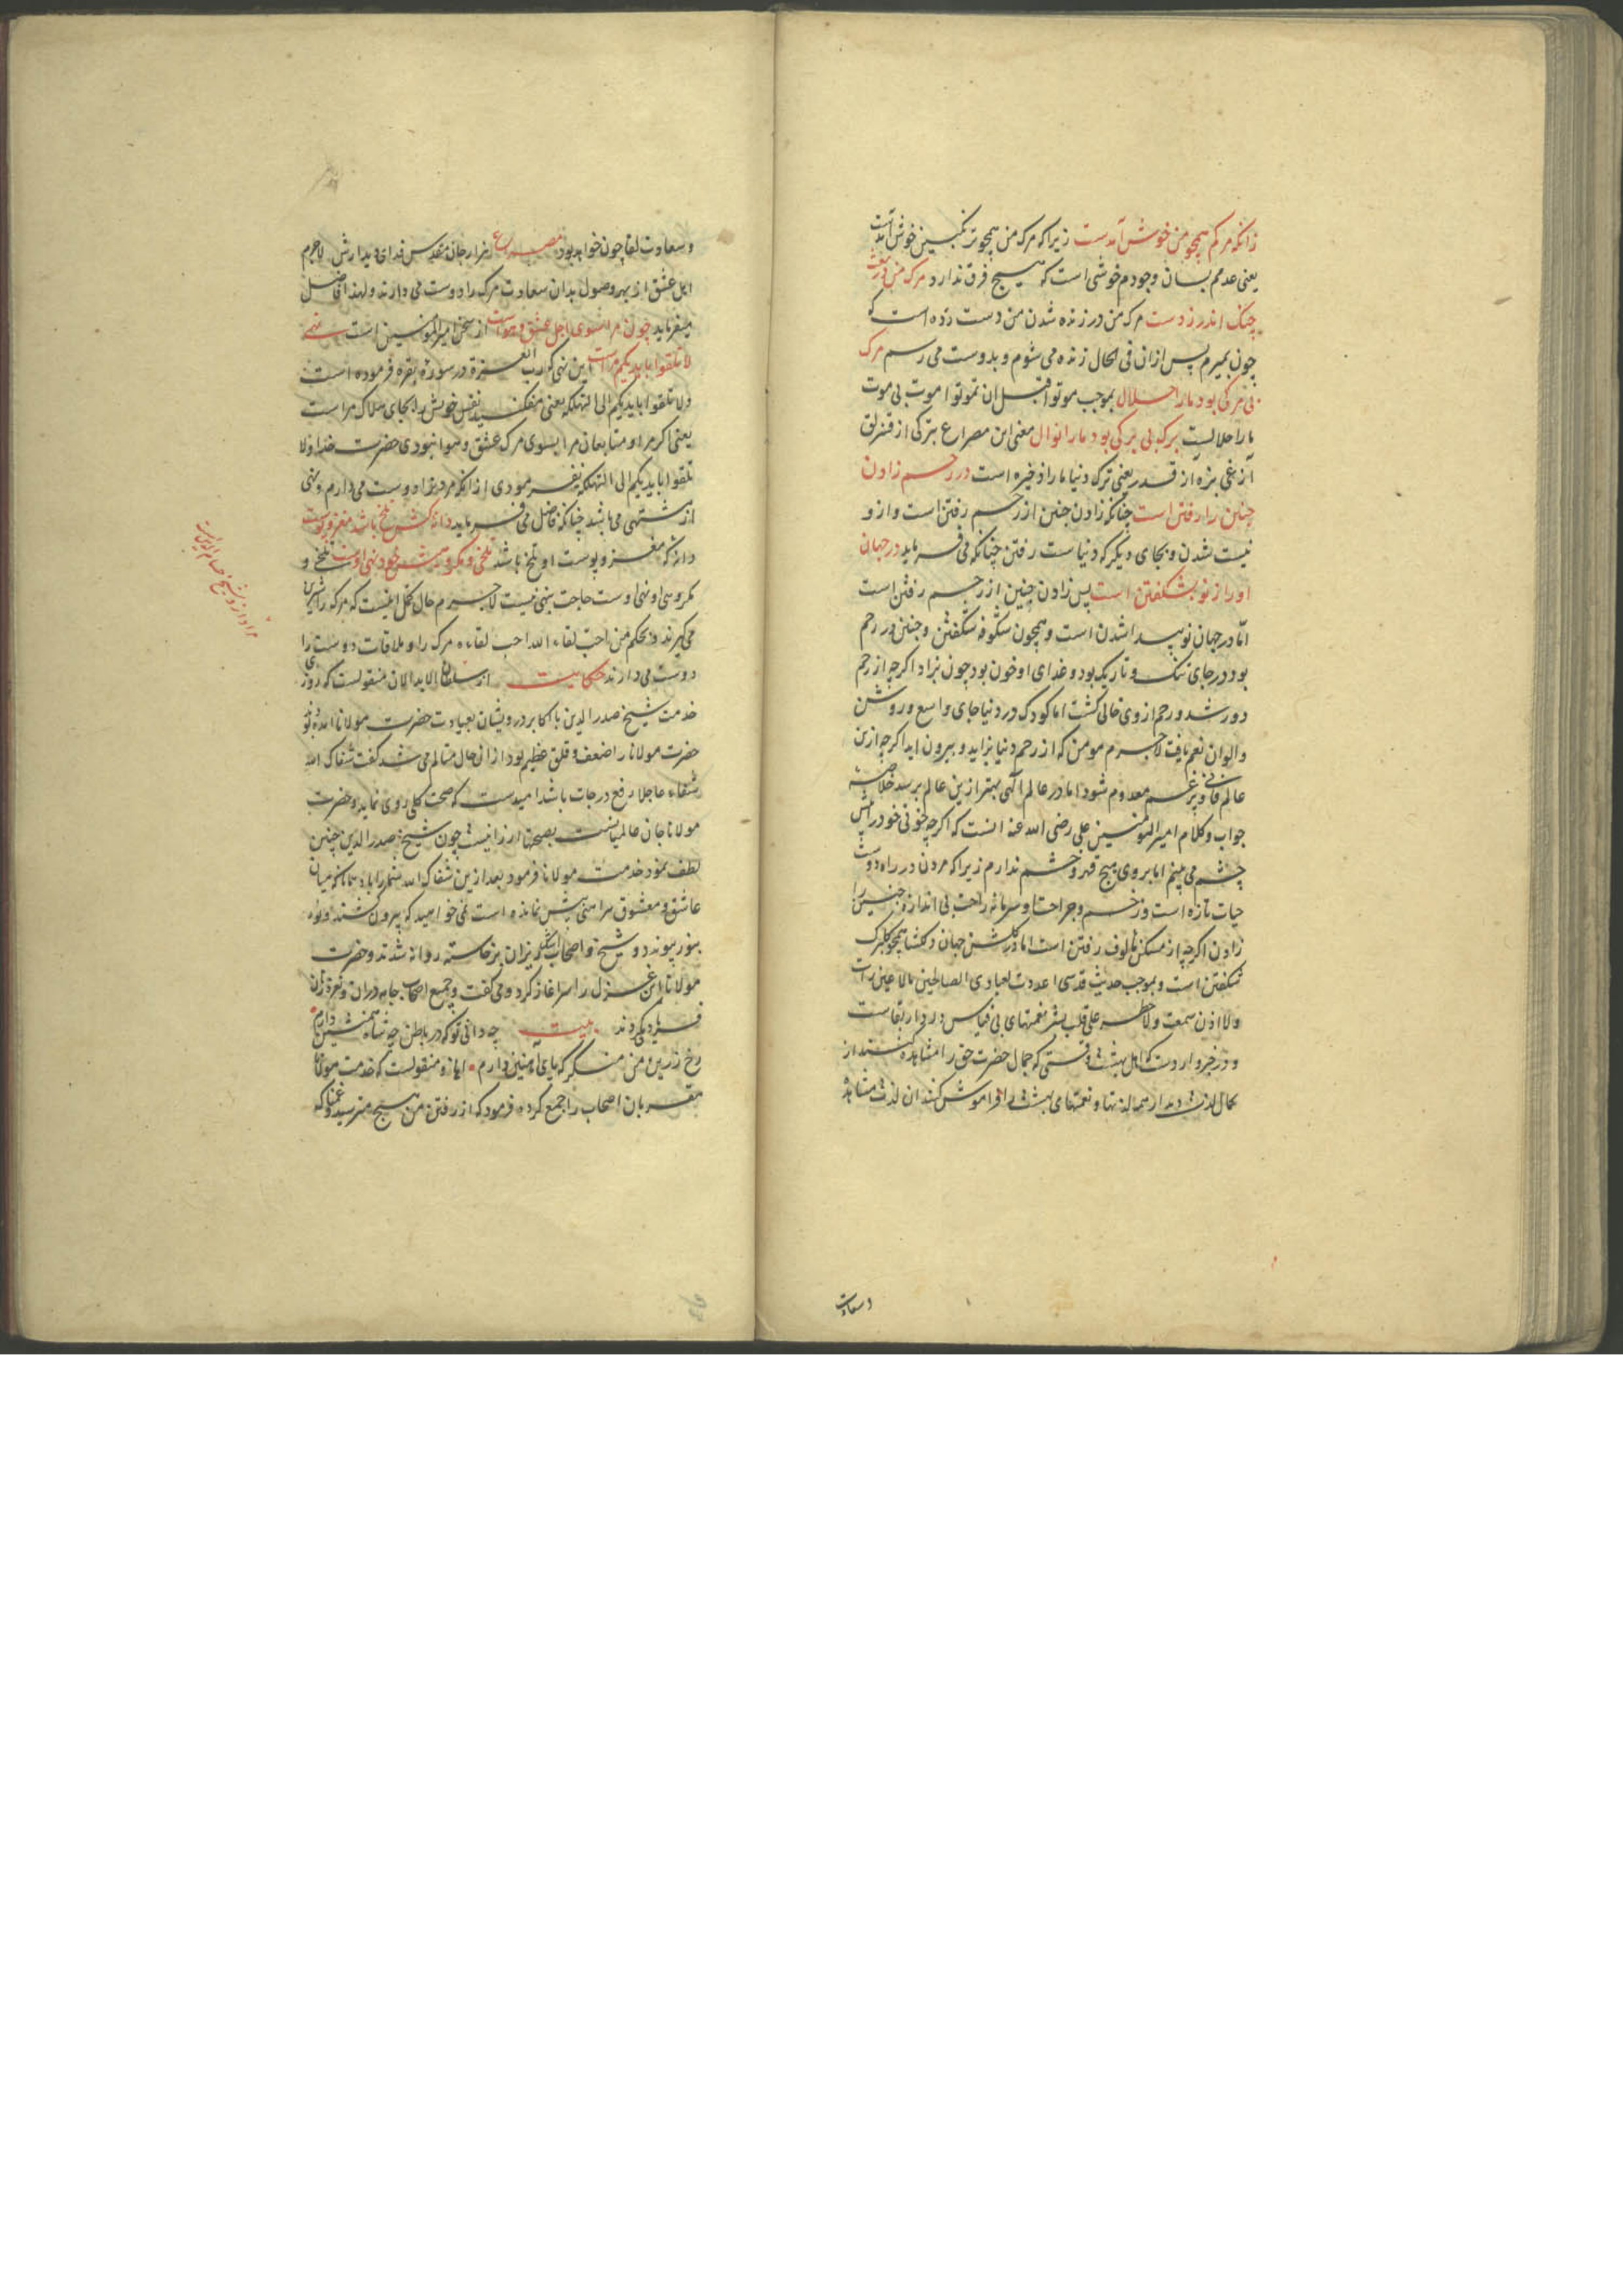 زانکه مرکم همچو من خوش آمدست زیرا که مرک من همچو من خوش آمدست
یعنی عدمم بسان وجودم خوشی است که هیچ فرق ندارد مرک من در بعث
چنک اندر زدست مرک من در زنده شدن من دست زده است که
چون بمیرم پس ازان فی الحال زنده می شوم و بدوست می رسم مرک
بی مرکی بود ما را حلال بموجب موتوا قبل ان تموتوا موت بی موت
ما را حلالست برک بی برکی بود ما را نوال معنی این مصراع
یعنی ترک دنیا ما را ذخیره است در رحم زادن
چنین را رفتن است چنانکه زادن جنین از رحم رفتن است و ازو
نیست شدن و بجای دیگر که دنیاست رفتن چنانکه می فرماید در جهان
او را ز نو بشکفتن است پس زادن جنین از رحم رفتن است
اما در جهان نو پیدا شدن است و همچون شکوفه شکفتن و جنین در رحم
بود در جای تنک و تاریک بود و غدای او خون بود چون بزاد اکرچه از رحم
دور شد و رحم از وی خالی کشت اما کودک در دنیا جای واسع و روشن
و الوان نعم یافت لاجرم مومن که از رحم دنیا بزاید و بیرون اید اکرچه ازین
عالم فانی و پرغم معدوم شود اما در عالم آلهی بهتر ازین عالم برسد خلاصه
جواب و کلام امیر المؤمنین علی رضی الله عنه انست که اکرچه خونی خود را پیش
چشم می بینم اما بروی هیچ قهر و خشم ندارم زیرا که مردن در راه دوست
حیات تازه است و زخم و جراحت او سرمایه راحت بی اندازه جنین را
زادن اکرچه از مسکن مألوف رفتن است اما در کلشن جهان دلکشا همچو کلبرک
شکفتن است و بموجب حدیث قدسی اعددت لعبادی الصالحین مالا عین رات
ولا اذن سمعت ولا خطر علی قلب بشر نعمتهای بی قیاس در دار بقاست
و در خبر واردست که اهل بهشت وقتی که جمال حضرت حق را مشاهده کنند از
کمال لذت دیدار همه لذتها و نعمتهای بهشت را فراموش کنند ان لذت مشاهده
وسعادت
و سعادت لقا چون خواهد بود مصراع هزار جان مقدس فدای دیدارش لاجرم
اهل عشق از بهر وصول بدان سعادت مرک را دوست می دارند و لهذا فاضل
میفرماید چون مرا سوی اجل عشق و هواست از سخن امیر المؤمنین است نهی
لا تلقوا بایدیکم مراست این نهی که رب العزة در سوره بقره فرموده است
ولا تلقوا بایدیکم الی التهلکه یعنی میفکنید نفس خویش را بجای هلاک مراست
یعنی اکر مرا و متابعان مرا بسوی مرک عشق و هوا نبودی حضرت خدا ولا
تلقوا بایدیکم الی التهلکه نفرمودی از انکه مردن را دوست می دارم و نهی
از مشتهی می باشد چنانکه فاضل می فرماید دانه کش تلخ باشد مغز و پوست
دانه که مغز و پوست او تلخ باشد تلخی و مکروهیش خود نهی اوست تلخی و
مکروهی او نهی اوست حاجت بنهی نیست لاجرم حال کمل اینست که مرک را شیرین
می کیرند و بحکم من احب لقاء الله احب الله لقاءه مرک را و ملاقات دوست را
دوست می دارند حکایت از سلطان الابدالان منقولست که روزی
خدمت شیخ صدر الدین با اکابر درویشان بعیادت حضرت مولانا آمده بود
حضرت مولانا را ضعف و قلق عظیم بود از ان حال متالم می شد کفت شفاک الله
شفاء عاجلا رفع درجات باشد امیدست که صحت کلی روی نماید و حضرت
مولانا جان عالمیانست بصحتها ارزانیست چون شیخ صدر الدین چنین
لطف نمود خدمت مولانا فرمود بعد ازین شفاک الله شما را باد همانا که میان
عاشق و معشوق پیراهنی بیش نمانده است نمی خواهید که بیرون کشند و نور
بنور پیوندد و شیخ و اصحاب اشک ریزان برخاسته روانه شدند و حضرت
مولانا این غزل را سر اغاز کرد و می کفت و جمیع اصحاب جامه دران و نعره زنان
فریاد می کردند بیت چه دانی تو که در باطن چه شاهی همنشین دارم
رخ زرین من منکر که پای آهنین دارم و ایضا منقولست که خدمت مولانا
مقربان اصحاب را جمع کرده فرمود که از رفتن من هیچ مترسید و غمناک